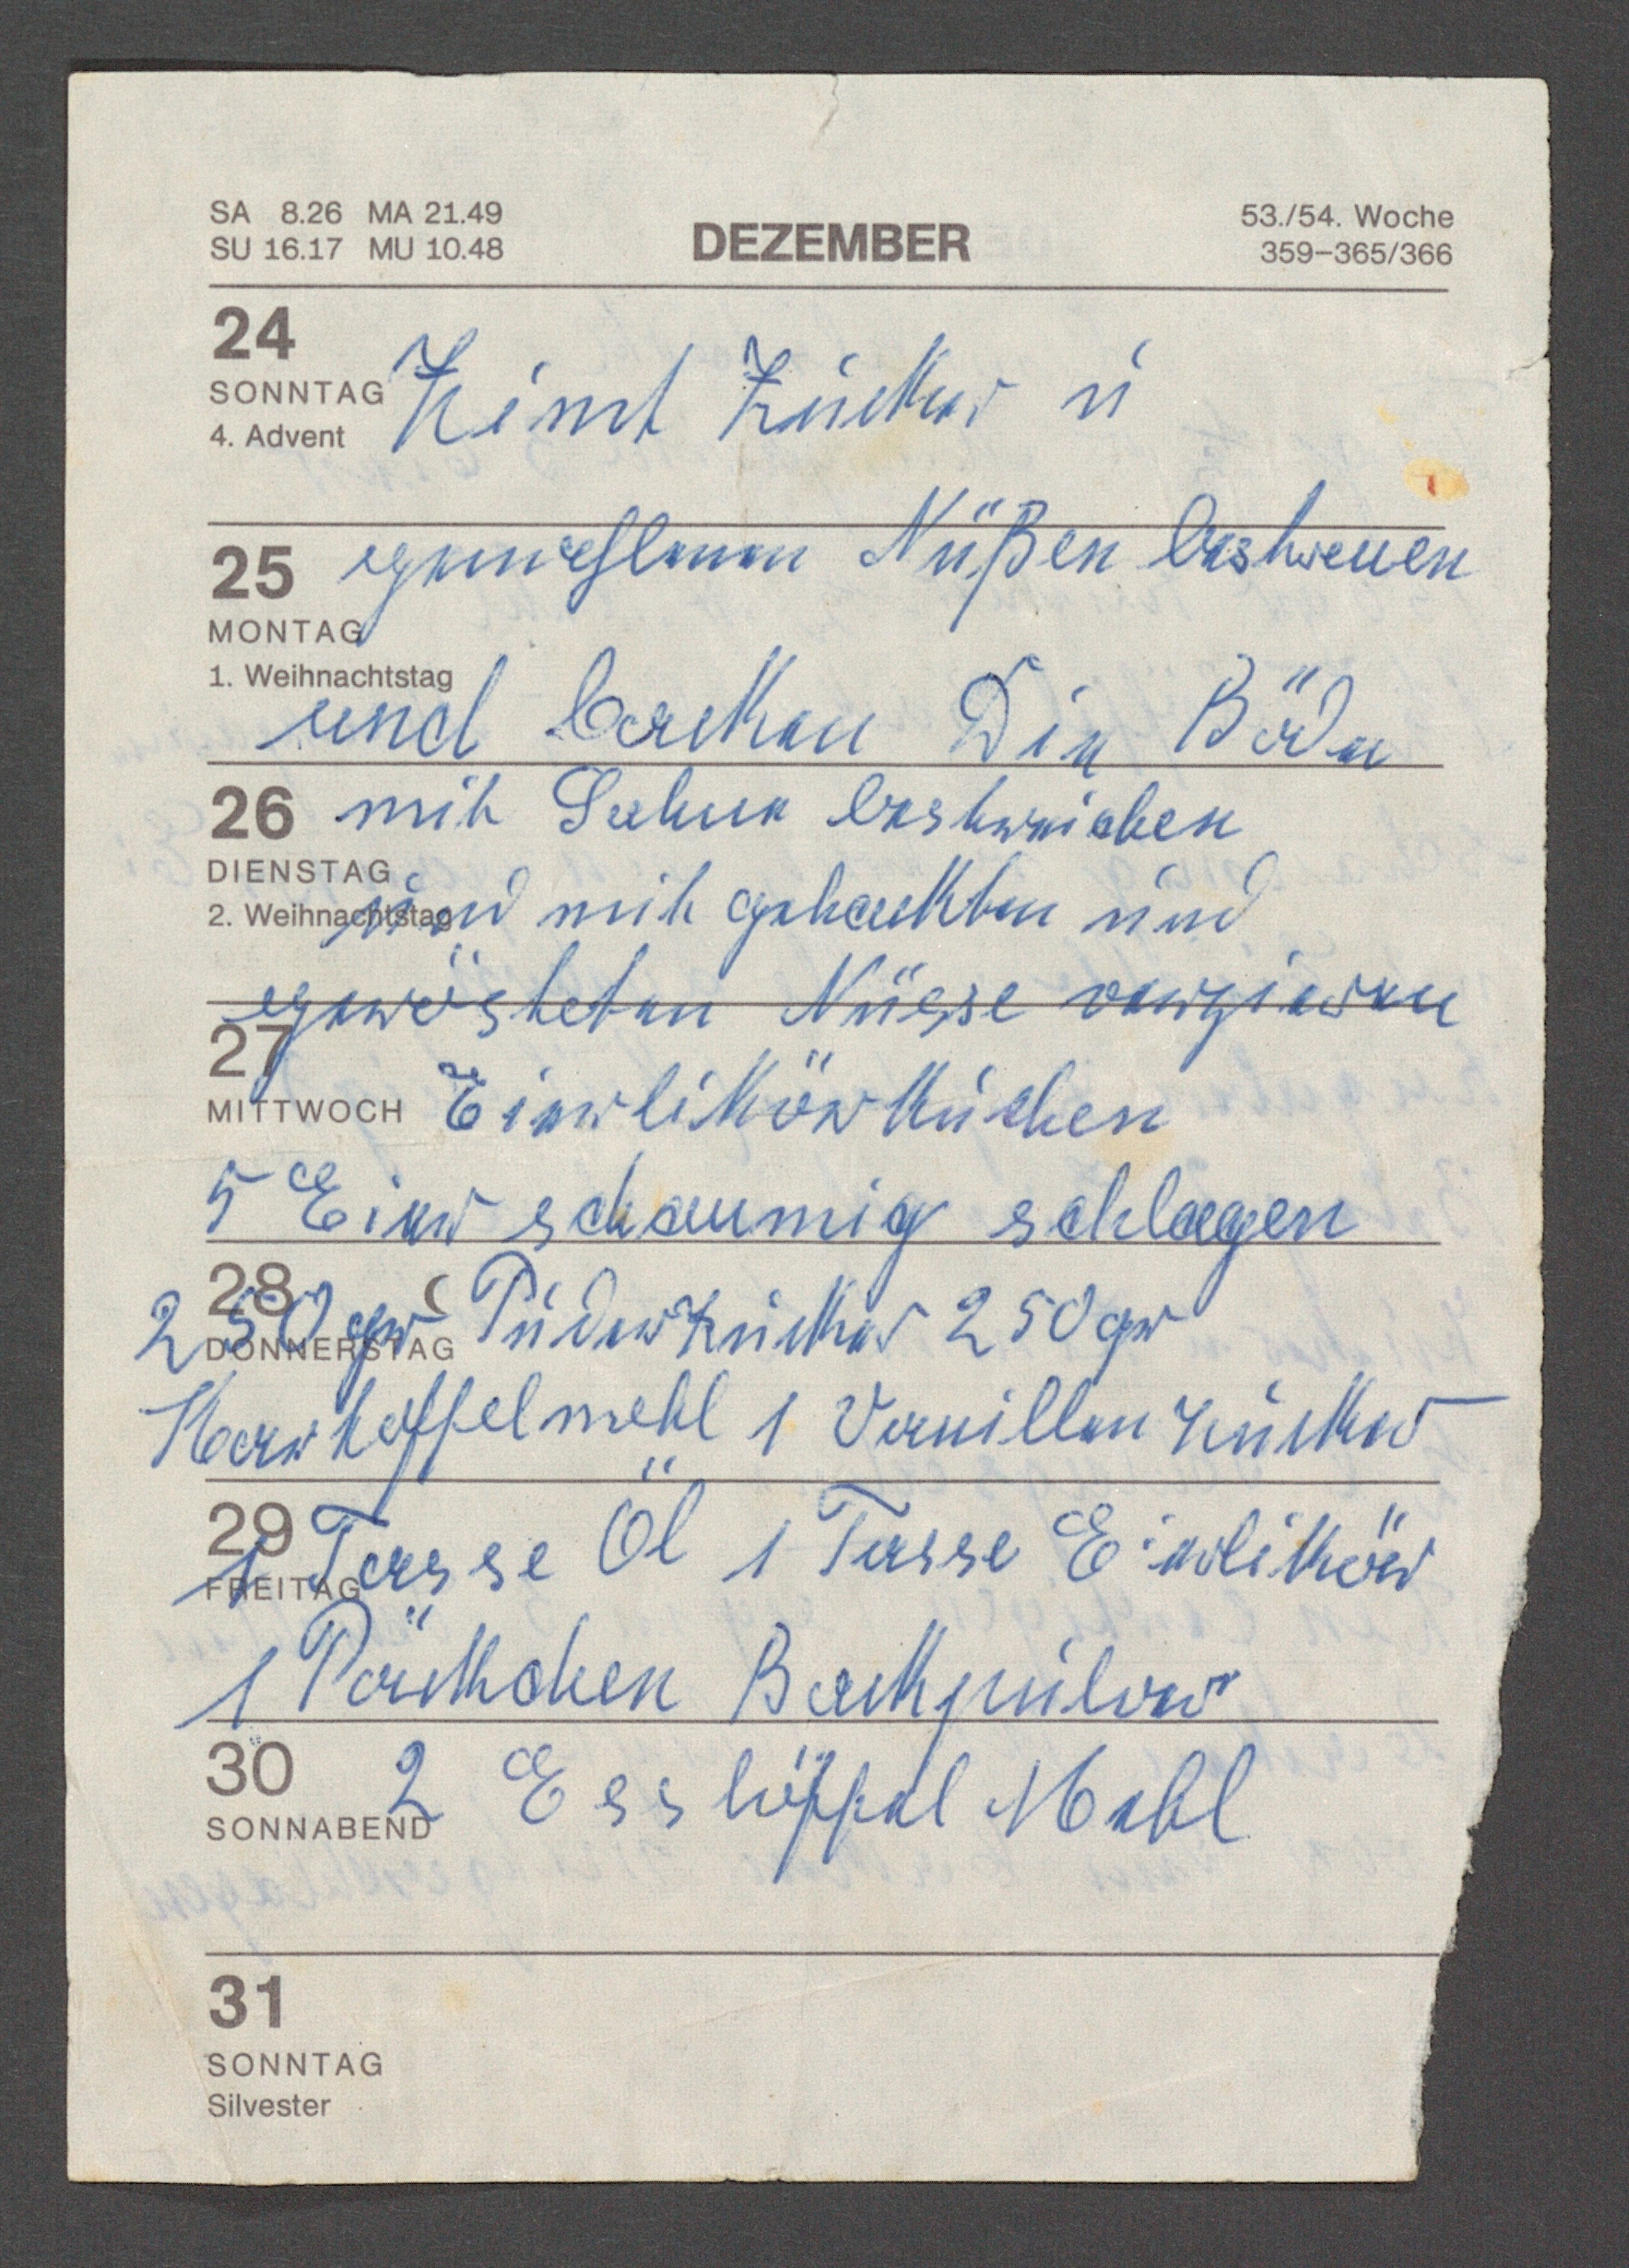 SA 8.26 MA 21.49
SU 16.17 MU 10.48
DEZEMBER
53./54. Woche
359–365/366
24
SONNTAG
4. Advent
Zimt Zucker u
25
gemahlenen Nüßen bestreuen
MONTAG
1. Weihnachtstag
und backen Die Böden
26
mit Sahne bestreichen
DIENSTAG
2. Weihnachtstag
und mit gehackten und
gerösteten Nüsse verzieren
27
MITTWOCH
Eierlikörkuchen
5 Eier schaumig schlagen
28
DONNERSTAG
250 gr Puderzucker 250 gr
Kartoffelmehl 1 Vanillenzucker
29
FREITAG
1 Tasse Öl 1 Tasse Eierlikör
1 Päckchen Backpulver
30
SONNABEND
2 Esslöffel Mehl
31
SONNTAG
Silvester